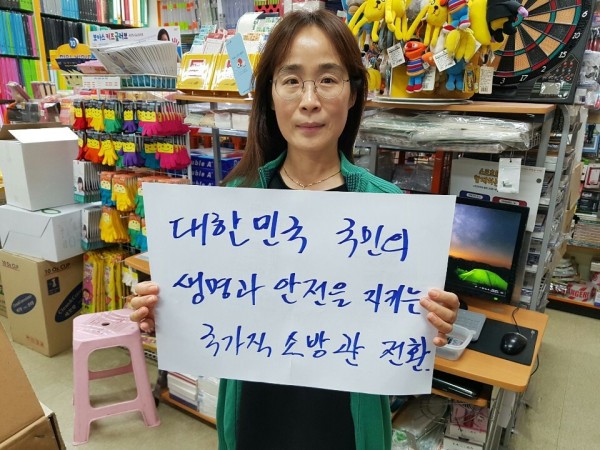 대한민국 국민의
생명과 안전을 지키는
국가직 소방관 전환.